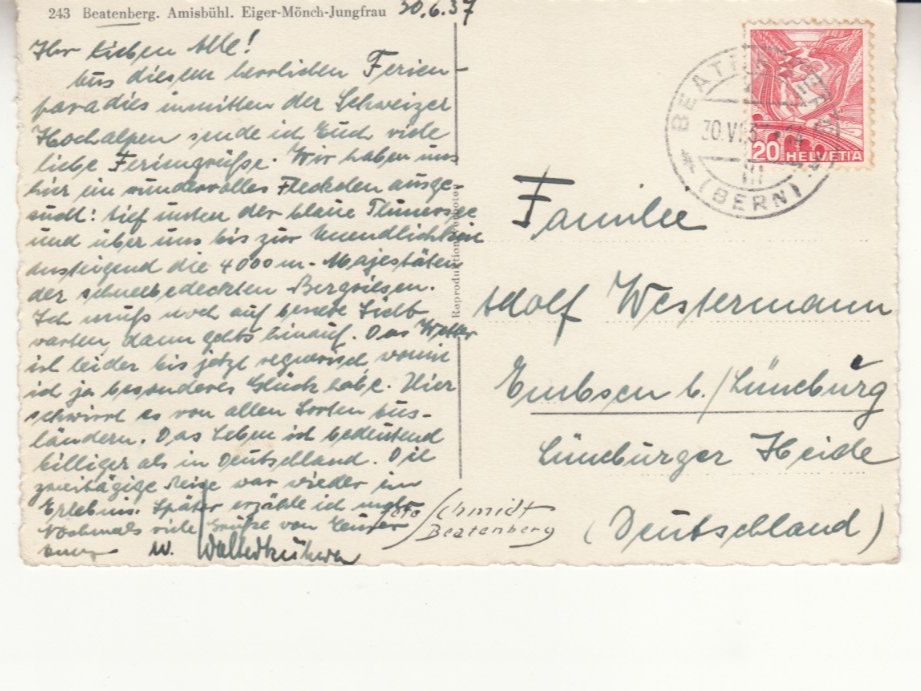 243 Beatenberg. Amisbühl. Eiger-Mönch-Jungfrau 30.6.37
Ihr lieben Alle!
Aus diesem herrlichen Ferien-
paradies inmitten der Schweizer
Hochalpen sende ich Euch viele
liebe Feriengrüße. Wir haben uns
hier ein wundervolles Fleckchen ausge-
sucht: tief unten der blaue Thunersee
und über uns bis zur Unendlichkeit
ansteigend die 4000 m-Majestäten
der schneebedeckten Bergriesen.
Ich muß noch auf bessere Sicht
warten, dann gehts hinauf. Das Wetter
ist leider bis jetzt regnerisch womit
ich ja besonderes Glück habe. Hier
schwirrt es von allen Sorten Aus-
ländern. Das Leben ist bedeutend
billiger als in Deutschland. Die
zweitägige Reise war wieder ein
Erlebnis. Später erzähle ich mehr
Nochmals viele Grüße von Eurer
W.
Reproduktion
Foto Schmidt
Beatenberg
BEATENBERG
30.VI.37
(BERN)
20 HELVETIA
Familie
Adolf Westermann
Embsen b./Lüneburg
Lüneburger Heide
(Deutschland)